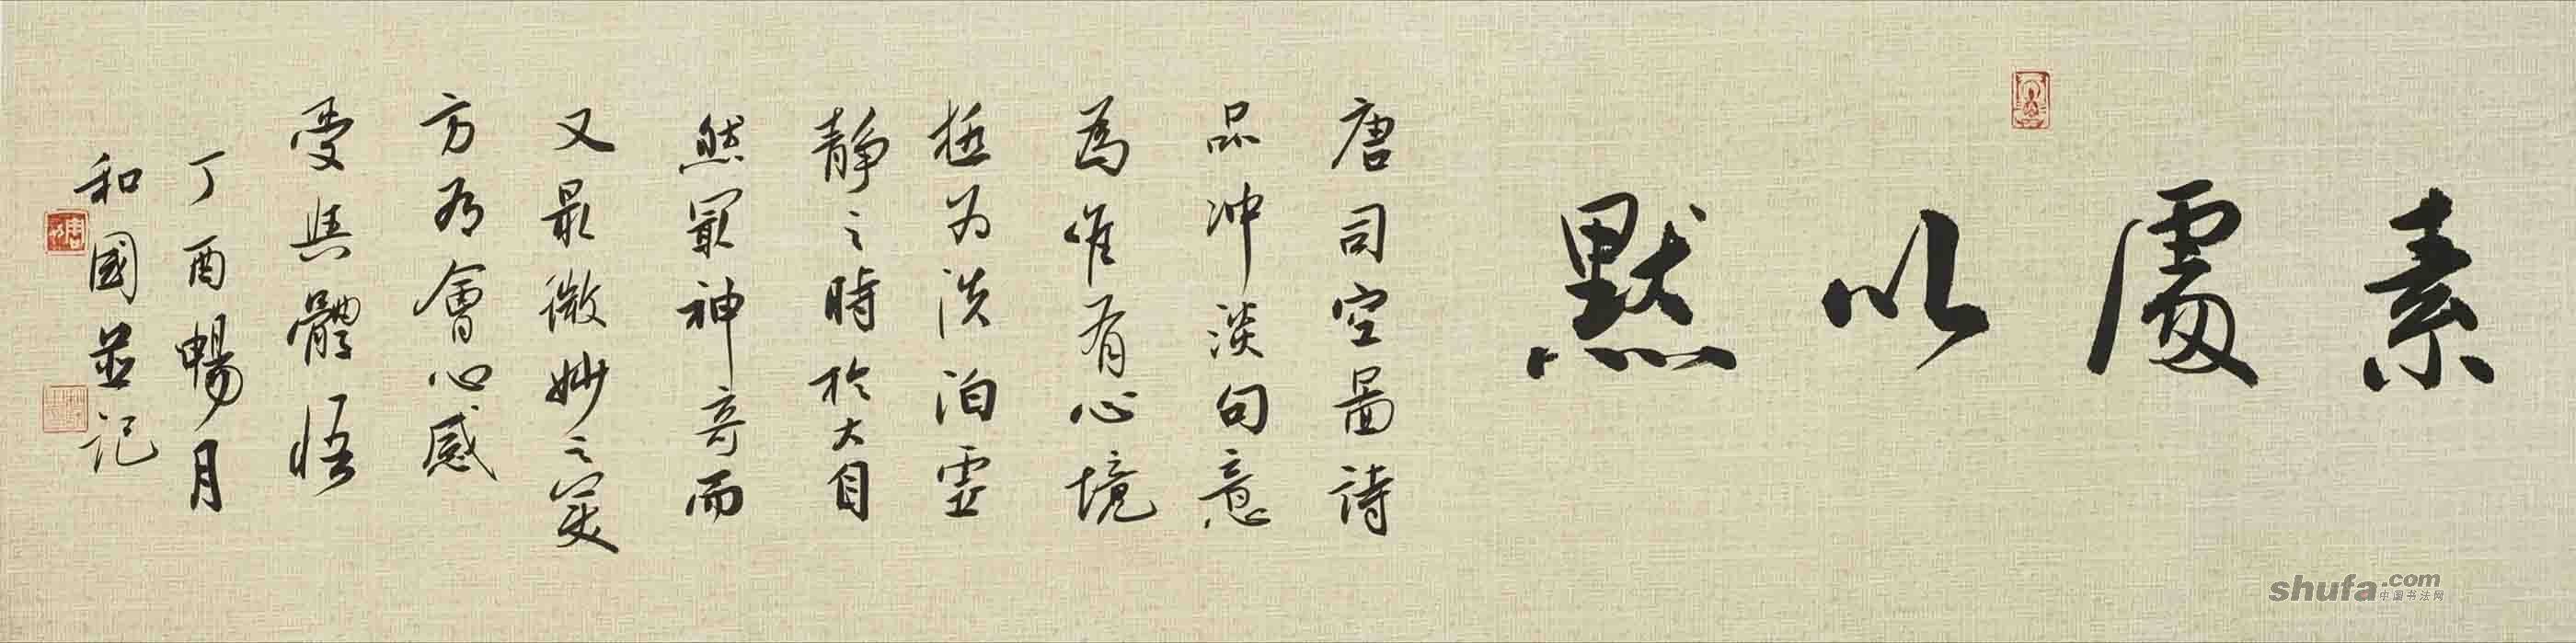 素處以默
唐司空圖詩
品冲淡句意
為唯有心境
極为淡泊虛
靜之時於大自
然最神奇而
又最微妙之美
方为會心感
受與體悟
丁酉暢月
和國並記
shufa.com
中国书法网